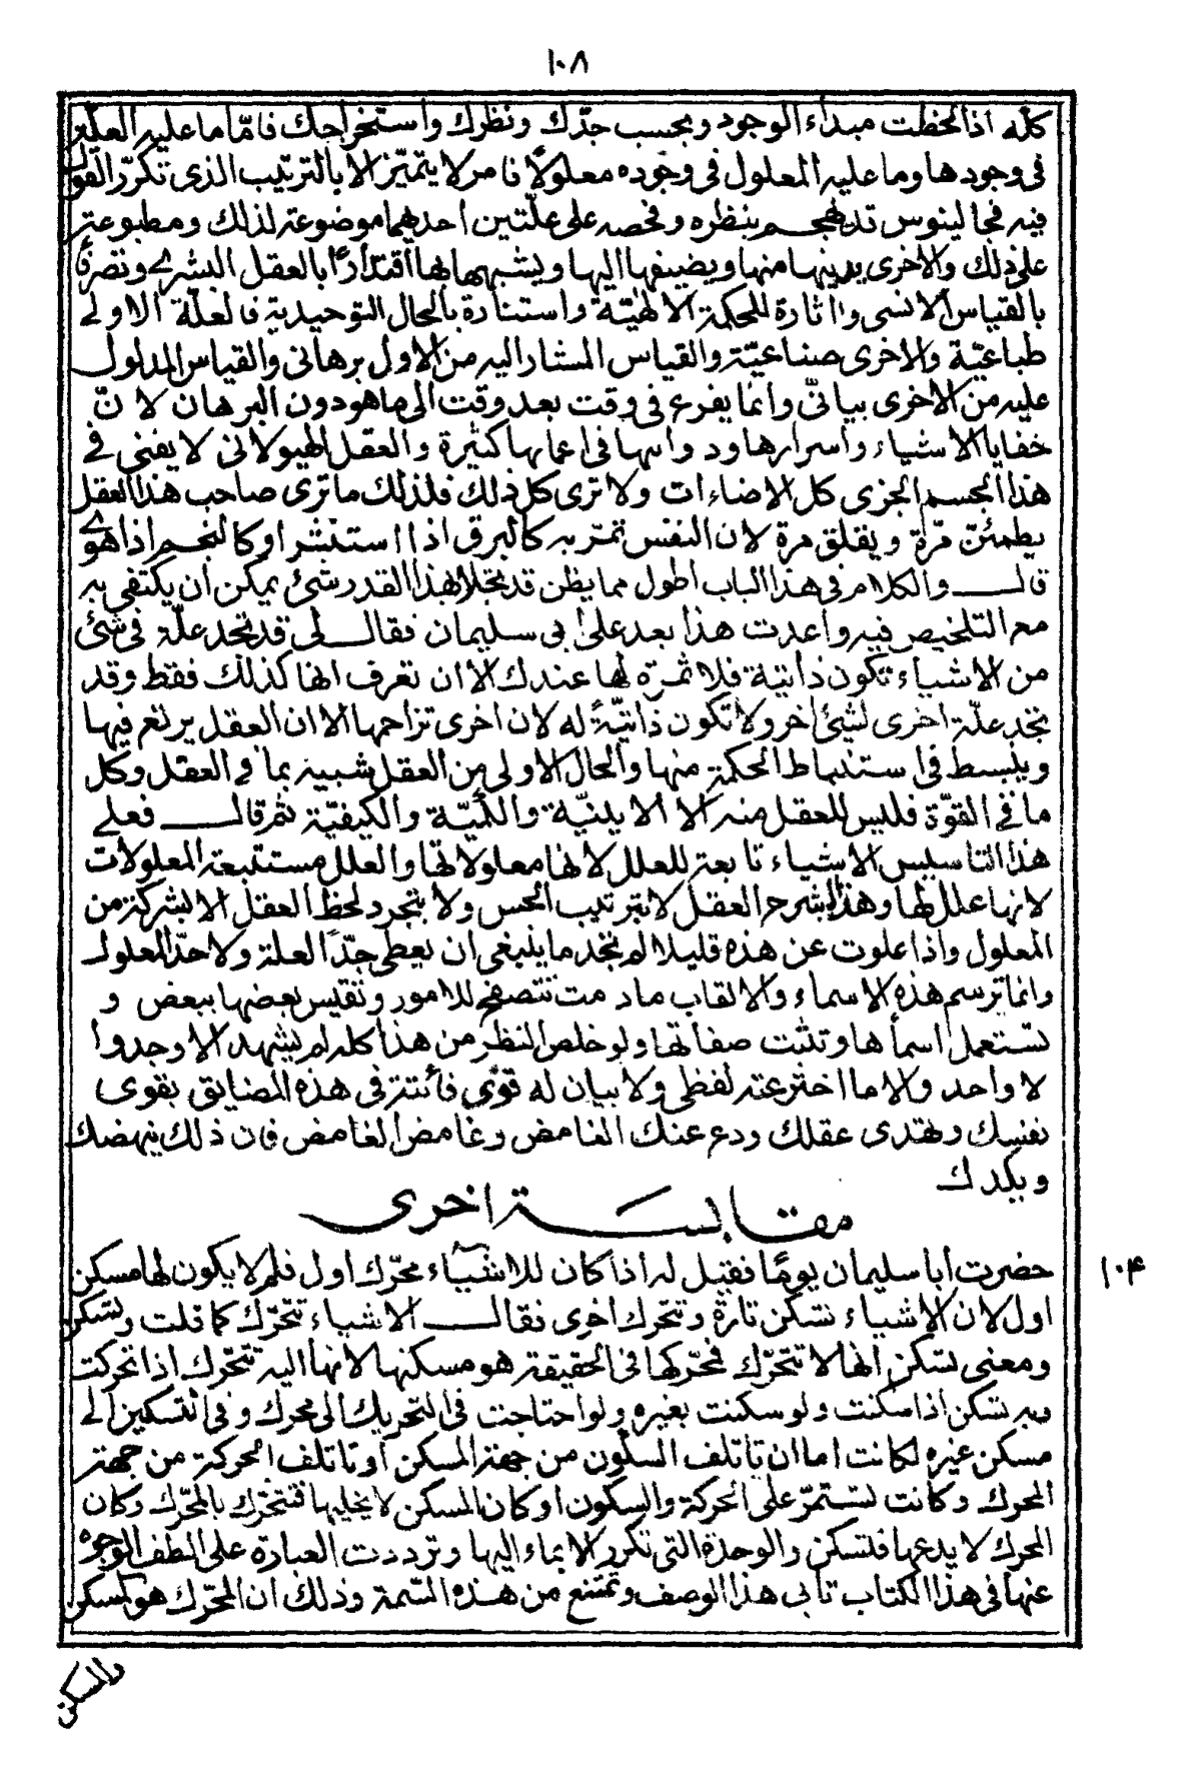 ١٠٨
كلّه اذا لحظت مبداء الوجود وبحسب جدّك ونظرك واستخراجك فامّا ما عليه العلّة
فى وجودها وما عليه المعلول فى وجوده معلولًا فامر لا يتميّز الا بالترتيب الذى تكرّر القول
فيه فجالينوس قد هجم بنظره وفحصه على علّتين احديهما موضوعة لذلك ومطبوعة
على ذلك والاخرى يدينها منها ويضيفها اليها ويشبهها لها اقتدارًا بالعقل البشرى وتصرفًا
بالقياس الانسى واثارة للحكمة الالهيّة واستنارة بالحال التوحيدية فالعلّة الاولى
طباعيّة والاخرى صناعيّة والقياس المشار اليه من الاول برهانى والقياس المدلول
عليه من الاخرى بيانّى وانما يفرع فى وقت بعد وقت الى ما هو دون البرهان لانّ
خفايا الاشياء واسرارها ود فى اعمابها كثيرة والعقل الهيولانى لا يفنى فى
هذا الجسم الجزى كل الاضاءات ولا ترى كل ذلك فلذلك ما ترى صاحب هذا العقل
يطمئنّ مّرة ويقلق مرة لان النفس تمّر به كالبرق اذا استنشر او كالنجم اذا هوى
قال والكلام فى هذا الباب اطول مما يظن قد تجلا بهذا القدر شئ يمكن ان يكتفى به
مع التلخيص فيه واعدت هذا بعد على ابى سليمان فقال لى قد تجد علّة فى شئ
من الاشياء تكون ذاتية فلا ثمرة لها عندك الا ان تعرف انها كذلك فقط وقد
تجد علّة اخرى لشئ اخر ولا تكون ذاتيّةً له لان اخرى تزاحمها الا ان العقل يرتع فيها
وينبسط فى استنباط الحكمة منها والحال الاولى من العقل شبيه بما فى العقل وكل
ما فى القوّة فليس للعقل منه الا الاينيّة والكميّة والكيفيّة ثم قال فعلى
هذا التاسيس الاشياء تابعة للعلل لانها معلولاتها والعلل مستتبعة المعلولات
لانها علل لها وهذا يشرح العقل لا بترتيب الحس ولا بتجرد لحظ العقل الا بشركة من
المعلول واذا علوت عن هذه قليلا لم تجد ما ينبغى ان يعطى حدّ العلة ولا حدّ المعلول
وانما ترسم هذه الاسماء والالقاب ما دمت تتصفح للامور وتقيس بعضها ببعض و
تستعمل اسمأها وتثبت صفاتها ولو خلص النظر من هذا كله لم يشهد الا وجدوا
لا واحد ولا ما اخترعته لفظى ولا بيان له قوى فأتئد فى هذه المضايق بقوى
نفسك وبهدى عقلك ودع عنك الغامض وغامض الغامض فان ذلك ينهضك
ويكدك
مقابسة اخرى
حضرت أبا سليمان يومًا فقيل له اذا كان للاشياء محرّك اول فلم لا يكون لها مسكن
اول لان الاشياء تسكن تارة وتتحرك اخرى فقال الاشياء تتحرّك كما قلت وتسكن
ومعنى تسكن انها لا تتحرّك فمحرّكها فى الحقيقة هو مسكنها لانها اليه تتحّرك اذا تحركت
وبه تسكن اذا سكنت ولو سكنت بغيره ولو احتاجت فى التحريك الى محرك وفى التسكين الى
مسكن غيره لكانت اما ان تاتلف السكون من جهة المسكن أو تاتلف الحركة من جهة
المحرك وكانت تستمرّ على الحركة والسكون او كان المسكن لا يخليها فتتحرّك بالمحرّك وكان
المحرك لا يدعها فتسكن والوحدة التى تكرر الايماء اليها وترددت العبارة على الطف الوجوه
عنها فى هذا الكتاب تابى هذا الوصف وتمتنع من هذه السّمة وذلك ان المحّرك هو المسكن
١٠٤
والمسكن